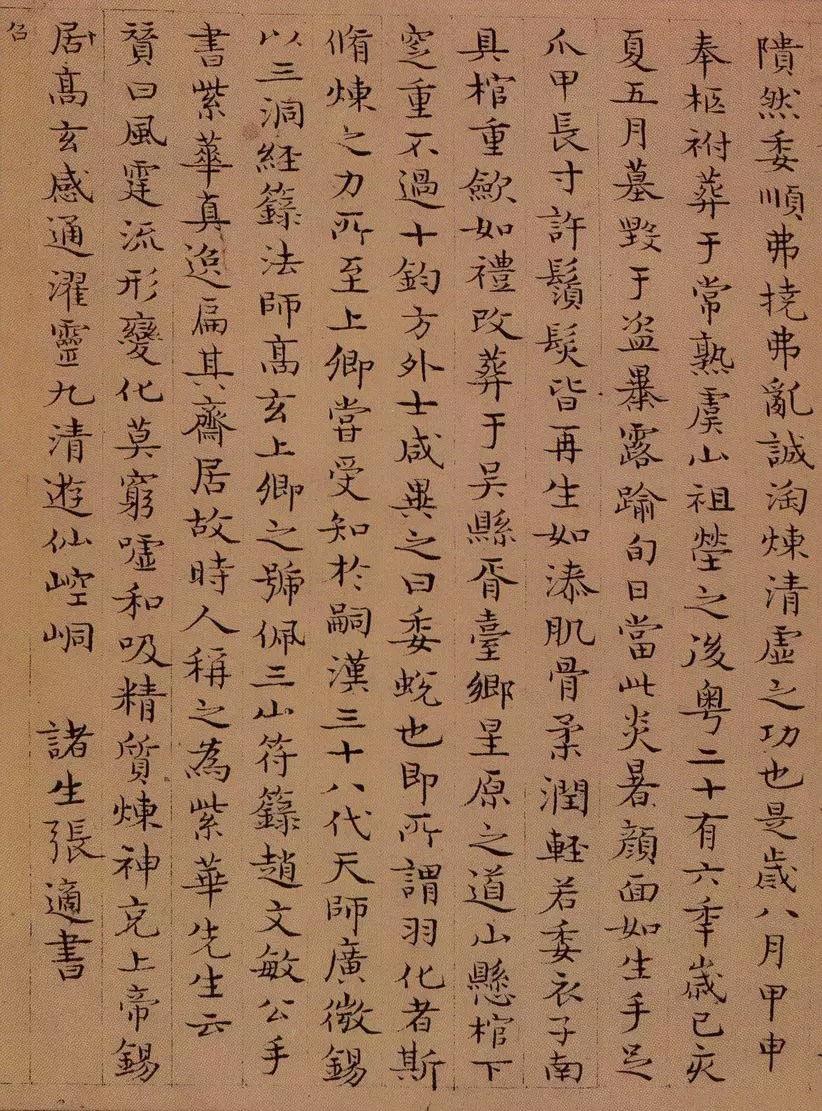 隤然委順弗撓弗亂誠淘煉清虛之功也是歲八月甲申
奉柩祔葬于常熟虞山祖塋之後粵二十有六年歲已亥
夏五月墓毀于盜暴露踰旬日當此炎暑顏面如生手足
爪甲長寸許鬚髮皆再生如漆肌骨柔潤輕若委衣子南
具棺重斂如禮改葬于吳縣胥臺鄉呈原之道山懸棺下
窆重不過十鈞方外士咸異之曰委蛻也即所謂羽化者斯
脩煉之力所至上卿嘗受知於嗣漢三十八代天師廣微錫
以三洞経籙法師髙玄上卿之號佩三山符籙趙文敏公手
書紫華真逸扁其齋居故時人稱之為紫華先生云
贊曰風霆流形變化莫窮噓和吸精質煉神完上帝錫
居髙玄感通濯靈九清遊仙崆峒 諸生張適書